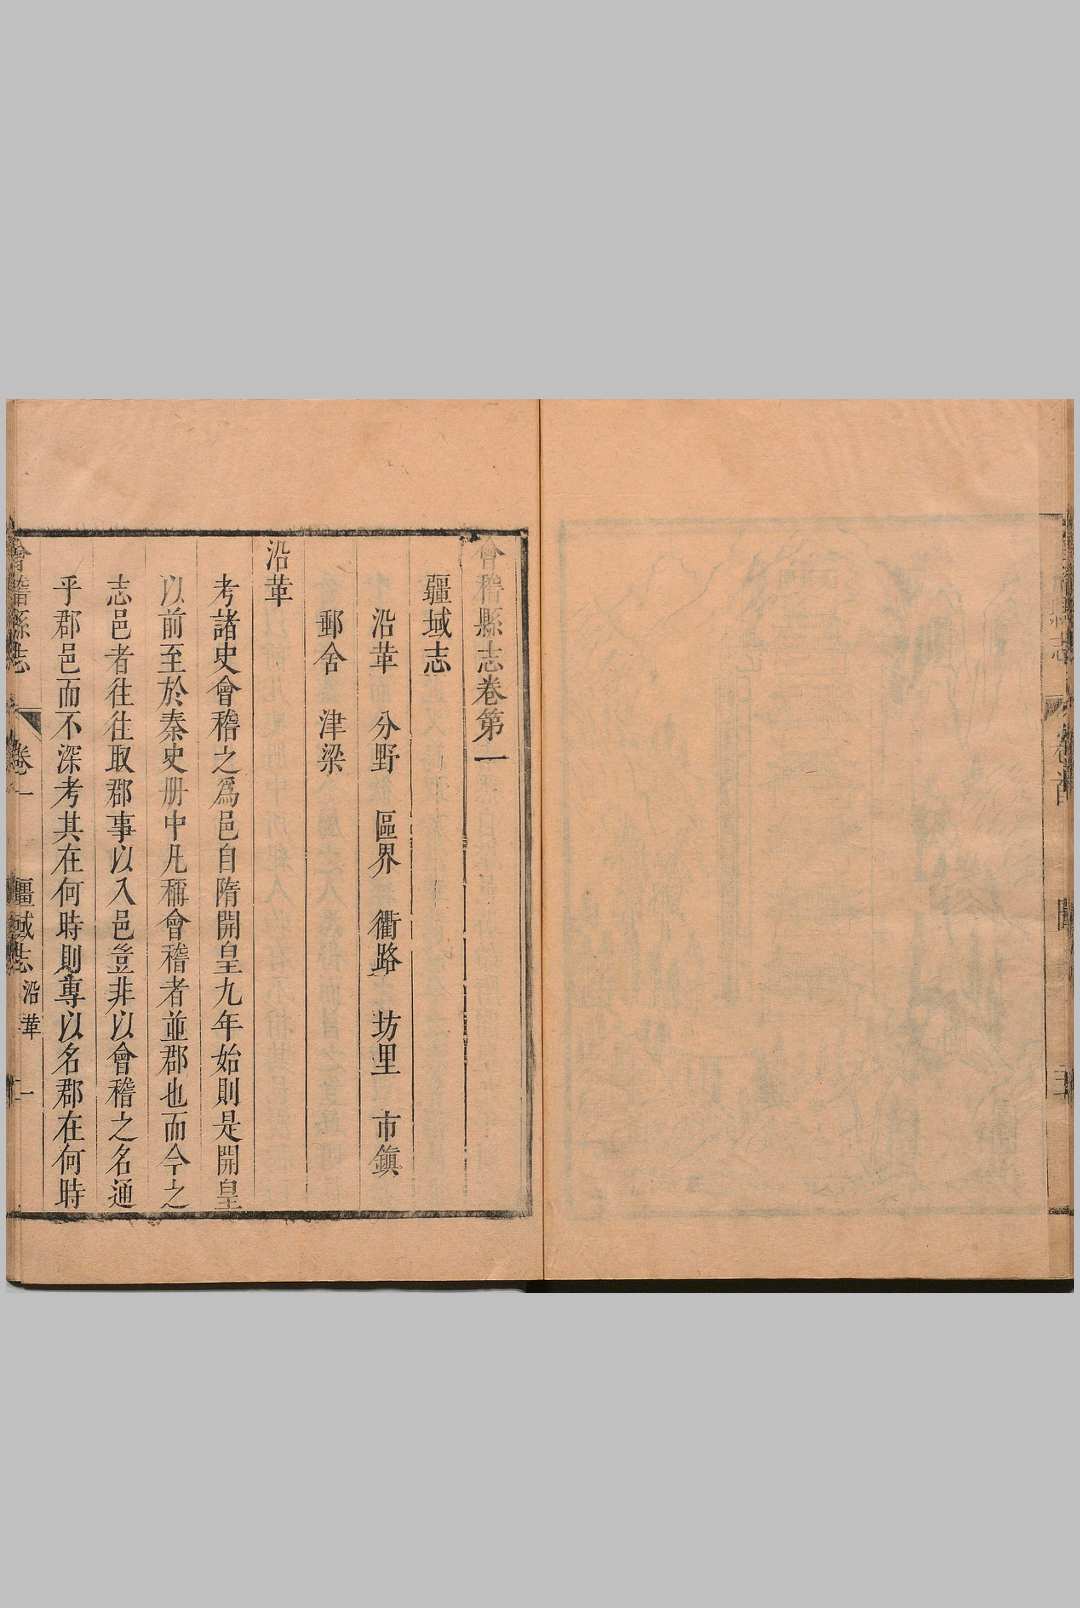 會稽縣志卷第一
疆域志
沿革 分野 區界 衢路 坊里 市鎮
郵舍 津梁
沿革
考諸史會稽之爲邑自隋開皇九年始則是開皇
以前至於秦史册中凡稱會稽者並郡也而今之
志邑者往往取郡事以入邑豈非以會稽之名通
乎郡邑而不深考其在何時則專以名郡在何時
會稽縣志 卷一 疆域志 沿革 一